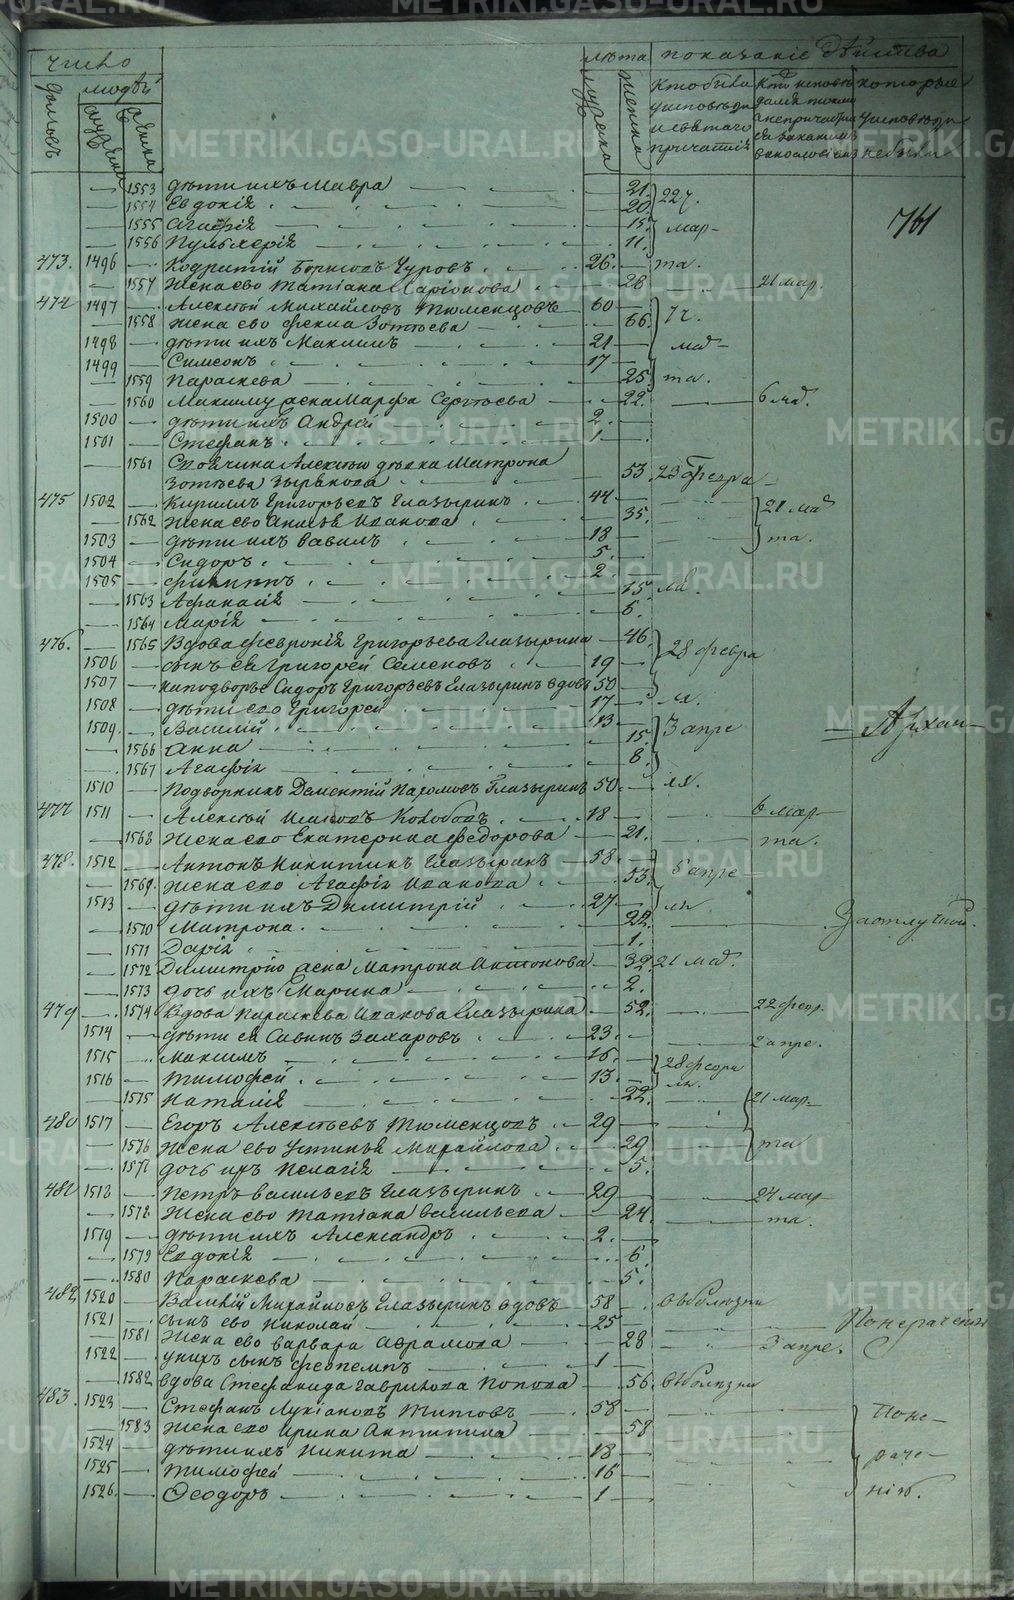 число
лѣта показаніе дѣйства
людей
домовъ
мужска
женска
761
1553 дѣти ихъ Мавра 21
1554 Евдокія 20
227
1555 Агафія 15
мар-
1556 Пульхерія 11
473. 1496 Кодратій Борисовъ Чуровъ 26 та.
1557 Жена ево Татіана Ларіонова 28 21 мар.
474 1497 Алексѣй Михайловъ Тюменцовъ 60
1558 жена ево Фекла Зотѣева 66
1498 дѣти ихъ Максимъ 21
1499 Симеонъ 17
1559 Параскева 25 та.
1560 Максиму жена Марфа Сергѣева 22 6 ма
1500 дѣти ихъ Андрей 2
1501 Стефанъ 1
1561 Алексѣю дѣвка Матрона
Зотѣева Зырянова 53 23 Февра
475 1502 Кирилъ Григорьевъ Глазыринъ 44
21 ма
1562 жена ево Анисья Иванова 35
1503 дѣти ихъ Савилъ 18 та.
1504 Сидоръ 5
1505 Филиппъ 2
1563 Афанасія 15
1564 Марія 6
476. 1565 Вдова Февронія Григорьева Глазырина 46
28 февра
1506 сынъ ея Григорей Семеновъ 19
1507 на подворье Сидоръ Григорьевъ Глазыринъ вдовъ 50
1508 дѣти ево Григорей 17 ля.
1509 Василій 13
3 апре
— Архан—
1566 Анна 15
1567 Агафія 8
1510 Подворникъ Дементій Пахомовъ Глазыринъ 50 ля.
477 1511 Алексѣй Ивановъ Колобовъ 18 6 мар-
1568 жена ево Екатерина Федорова 21 та.
478. 1512 Антонъ Никитинъ Глазыринъ 58
5 апре
1569 жена ево Агафія Иванова 53
1513 дѣти ихъ Димитрій 27 ля
1570 Матрона 22 За отлучкой.
1571 Дарія 1
1572 Димитрію жена Матрона Антонова 32 21 ма
1573 дочь ихъ Марина 2
479 1574 Вдова Параскева Иванова Глазырина 52 22 февр.
1514 дѣти ея Савинъ Захаровъ 23 2 апре.
1515 Максимъ 16
28 февра
1516 Тимофей 13 ля.
1575 Наталія 22 21 мар-
480 1517 Егоръ Алексѣевъ Тюменцовъ 29
1576 жена ево Устинья Михайлова 29 та
1577 дочь ихъ Пелагія 5
481 1518 Петръ Васильевъ Глазыринъ 29 24 мар
1578 жена ево Татіана Васильева 24 та.
1519 дѣти ихъ Александръ 2
1579 Евдокія 6
1580 Параскева 5
482 1520 Василій Михайловъ Глазыринъ вдовъ 58 в болѣзни
1521 сынъ ево Николай 25 По нераченію
1581 Жена ево Варвара Абрамова 28 3 апре.
1522 у нихъ сынъ Феопемптъ 1
1582 вдова Стефанида Гаврилова Попова 56 в болѣзни
483. 1523 Стефанъ Лукіановъ Титовъ 58 По не-
1583 жена ево Ирина Антипина 58
1524 дѣти ихъ Никита 18 раче-
1525 Тимофей 16
1526. Ѳеодоръ 1 нію.
METRIKI.GASO-URAL.RU